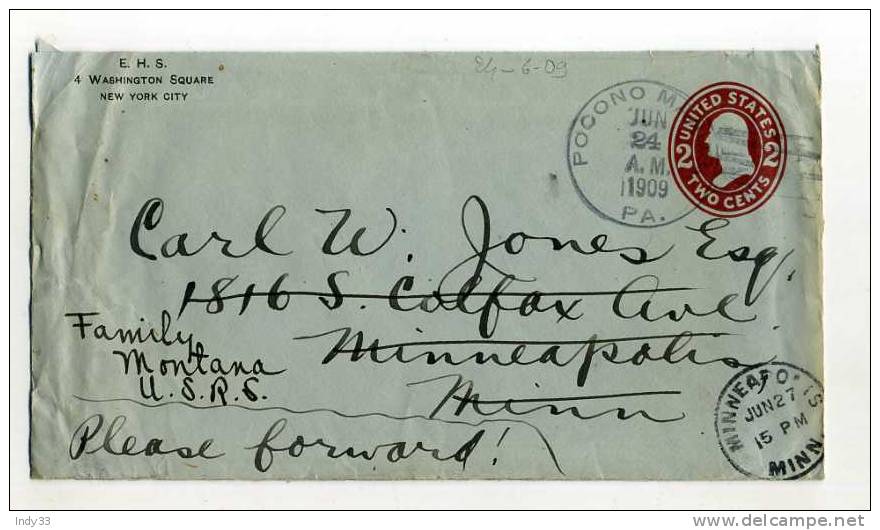 E. H. S.
4 WASHINGTON SQUARE
NEW YORK CITY
24-6-09
POCONO M
JUN
24
A.M.
1909
PA.
UNITED STATES
2 2
TWO CENTS
Carl W. Jones Esq.
1816 S. Colfax Ave.
Minneapolis
Minn
Family
Montana
U.S.R.S.
Please forward!
MINNEAPO IS
JUN 27
15 PM
MINN
Indy33
delcampe.net